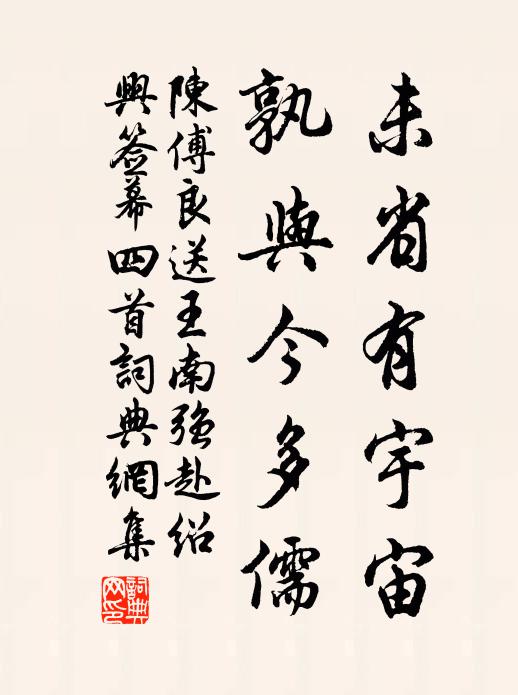 未省有宇宙
孰與今多儒
陳傅良送王南强赴绍
興簽幕四首詞典網集
詞典網印